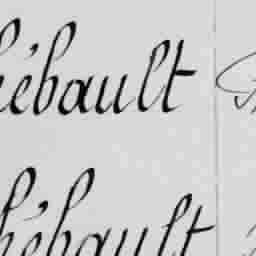 hébault
hébault